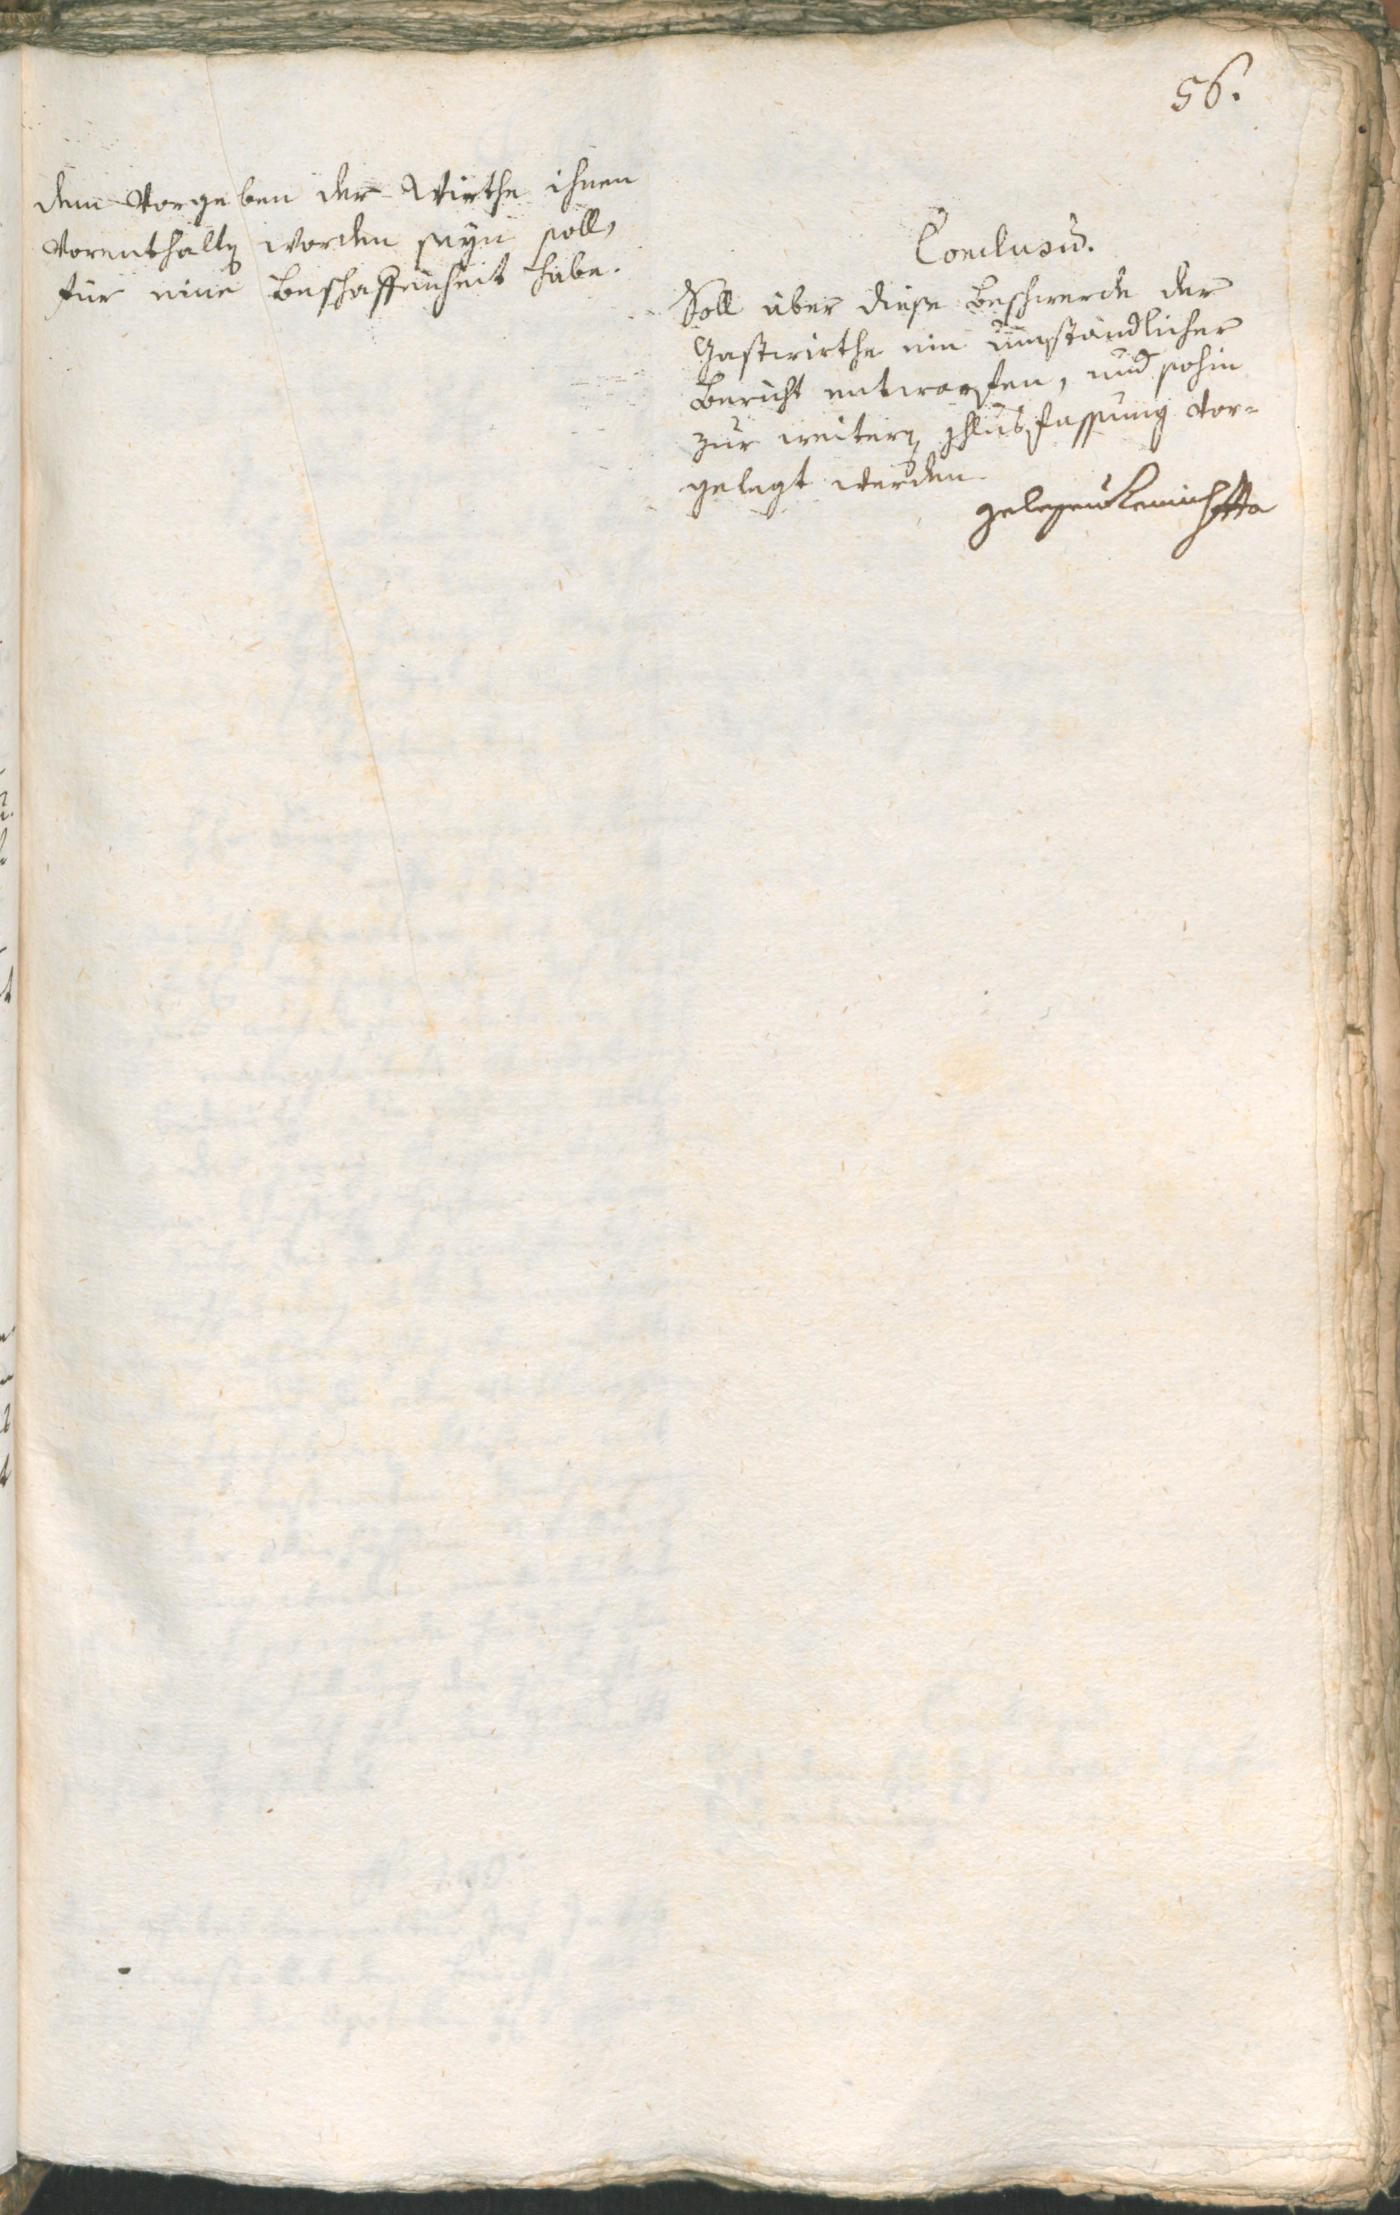 56.
dem Vorgeben der Wirthe ihnen
vorenthalten worden seyn soll,
für eine Beschaffenheit habe.
Conclusū.
Soll über diese Beschwerde der
Gastwirthe ein umständlicher
Bericht entworfen, und sohin
zur weitern Schlusfassung vor=
gelegt werden
gelesen